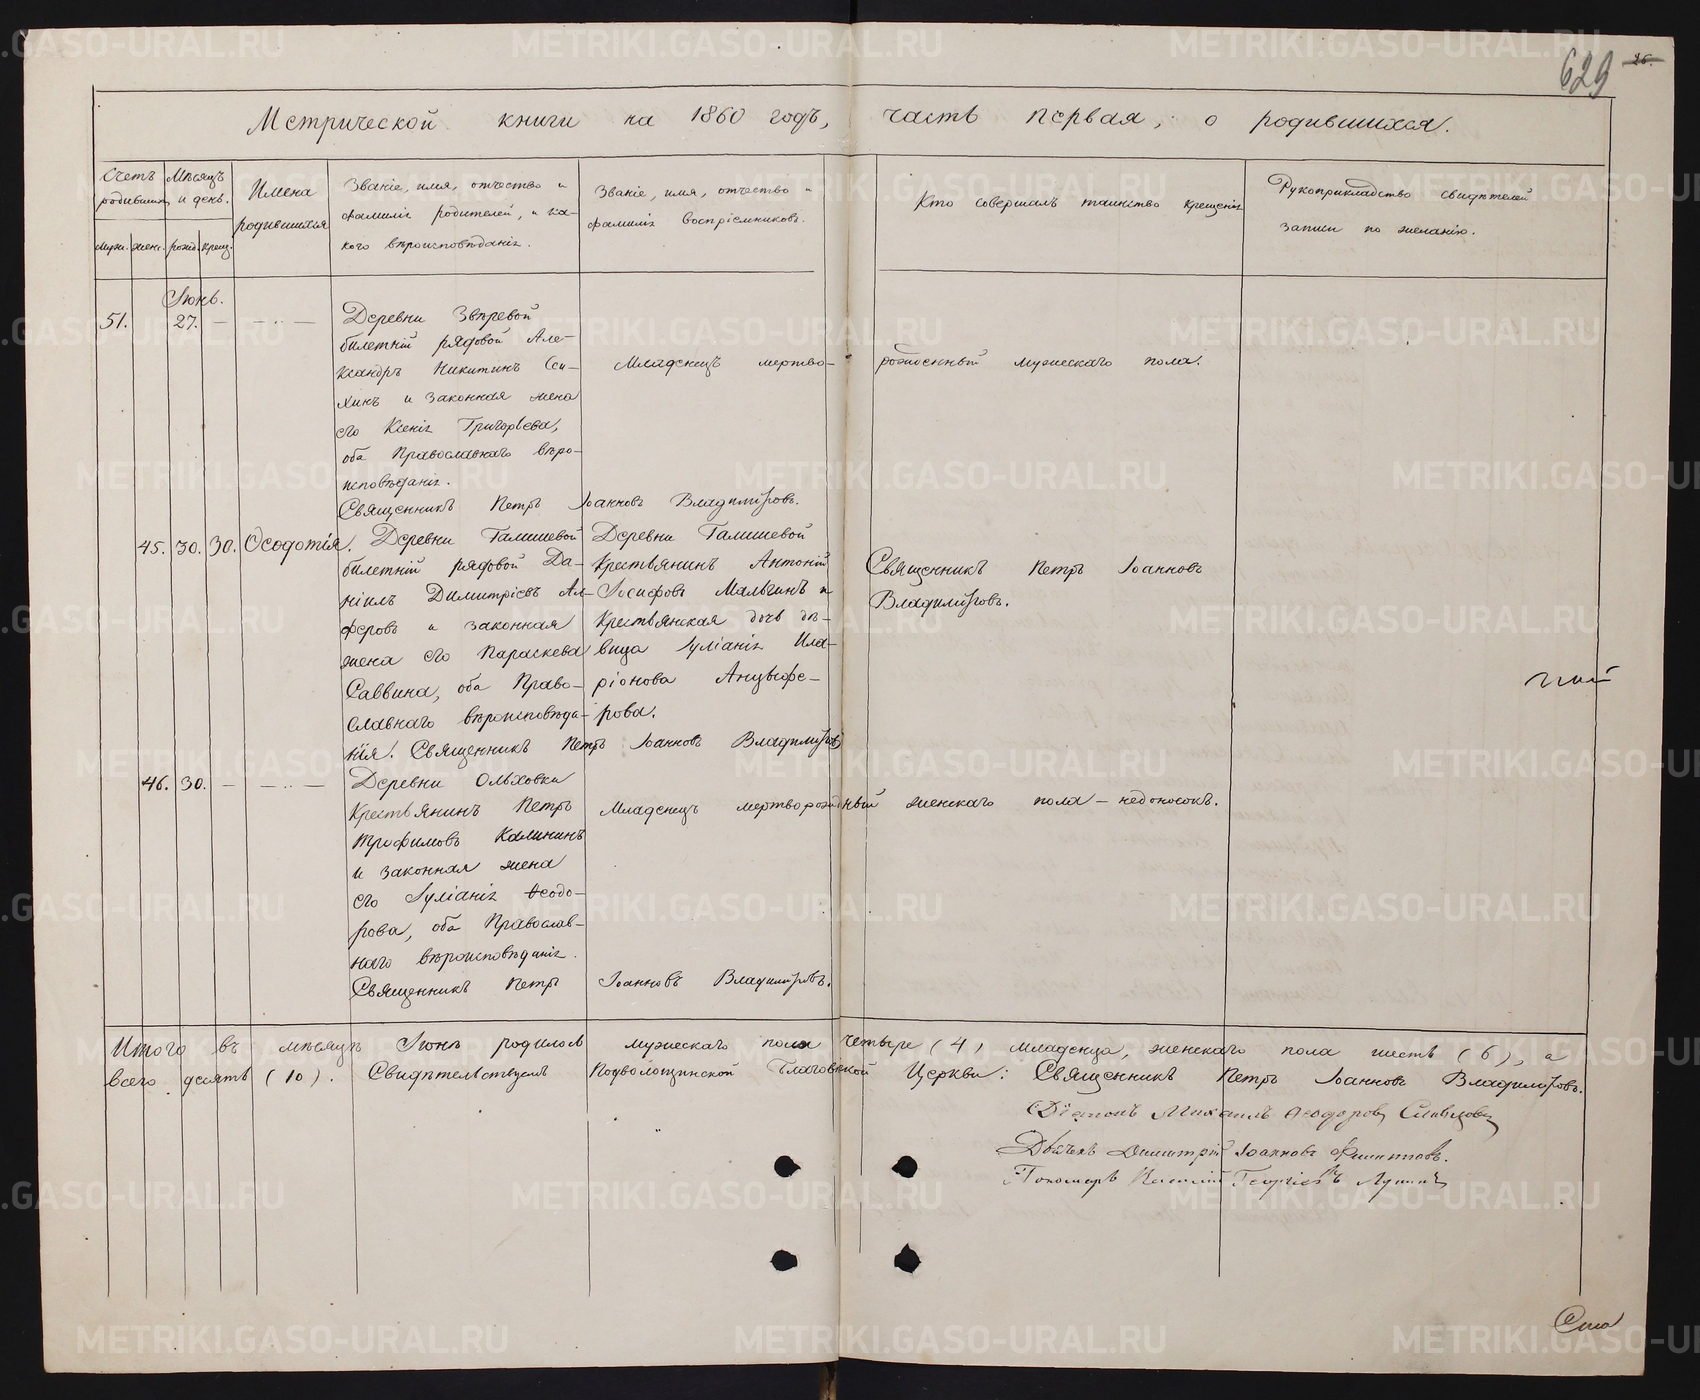 629 26.
Метрической книги на 1860 годъ, часть первая, о родившихся.
Счетъ родившихся
муж. жен.
Мѣсяцъ и день.
рожд. крещ.
Имена родившихся
Званіе, имя, отчество и
фамилія родителей, и ка-
кого вѣроисповѣданія.
Званіе, имя, отчество и
фамилія воспріемниковъ.
Кто совершалъ таинство крещенія
Рукоприкладство свидѣтелей
записи по желанію.
Іюнь.
51. 27. — — „ —
Деревни Звѣревой
билетный рядовой Але-
ксандръ Никитинъ
и законная жена
его Ксенія Григорьева,
оба Православнаго вѣро-
исповѣданія.
Младенецъ мертво- рожденный мужескаго пола.
Священникъ Петръ Іоанновъ Владиміровъ.
45. 30. 30. Ѳеодотія.
Деревни Галишевой
билетній рядовой Да-
ніилъ Димитріевъ Ал-
феровъ и законная
жена его Параскева
Саввина, оба Право-
славнаго вѣроисповѣда-
нія. Священникъ Петръ Іоанновъ Владиміровъ
Деревни Галишевой
Крестьянинъ Антоній
Іосифовъ Мальгинъ и
Крестьянская дочь дѣ-
вица Іуліанія Ила-
ріонова Анцыфе-
рова.
Священникъ Петръ Іоанновъ
Владиміровъ.
46. 30. — — „ —
Деревни Ольховки
Крестьянинъ Петръ
Трофимовъ Калининъ
и законная жена
его Іуліанія Ѳеодо-
рова, оба Православ-
наго вѣроисповѣданія.
Младенецъ мертворожденный женскаго пола – недоносокъ.
Священникъ Петръ Іоанновъ Владиміровъ.
Итого въ мѣсяцъ Іюнь родилось мужескаго пола четыре (4) младенца, женскаго пола шесть (6), а
всего десять (10). Свидѣтельствуемъ Подволошинской Церкви: Священникъ Петръ Іоанновъ Владиміровъ.
Діаконъ Михаилъ Ѳеодоровъ
Дьячекъ Димитрій Іоанновъ Филипповъ.
Пономарь Василій Георгіевъ